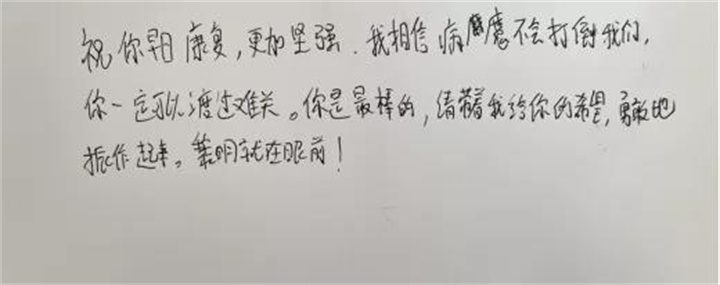 祝你早日康复，更加坚强．我相信病魔不会打倒我们，
你一定可以渡过难关。你是最棒的，请带着我给你的希望，勇敢地
振作起来。黎明就在眼前！